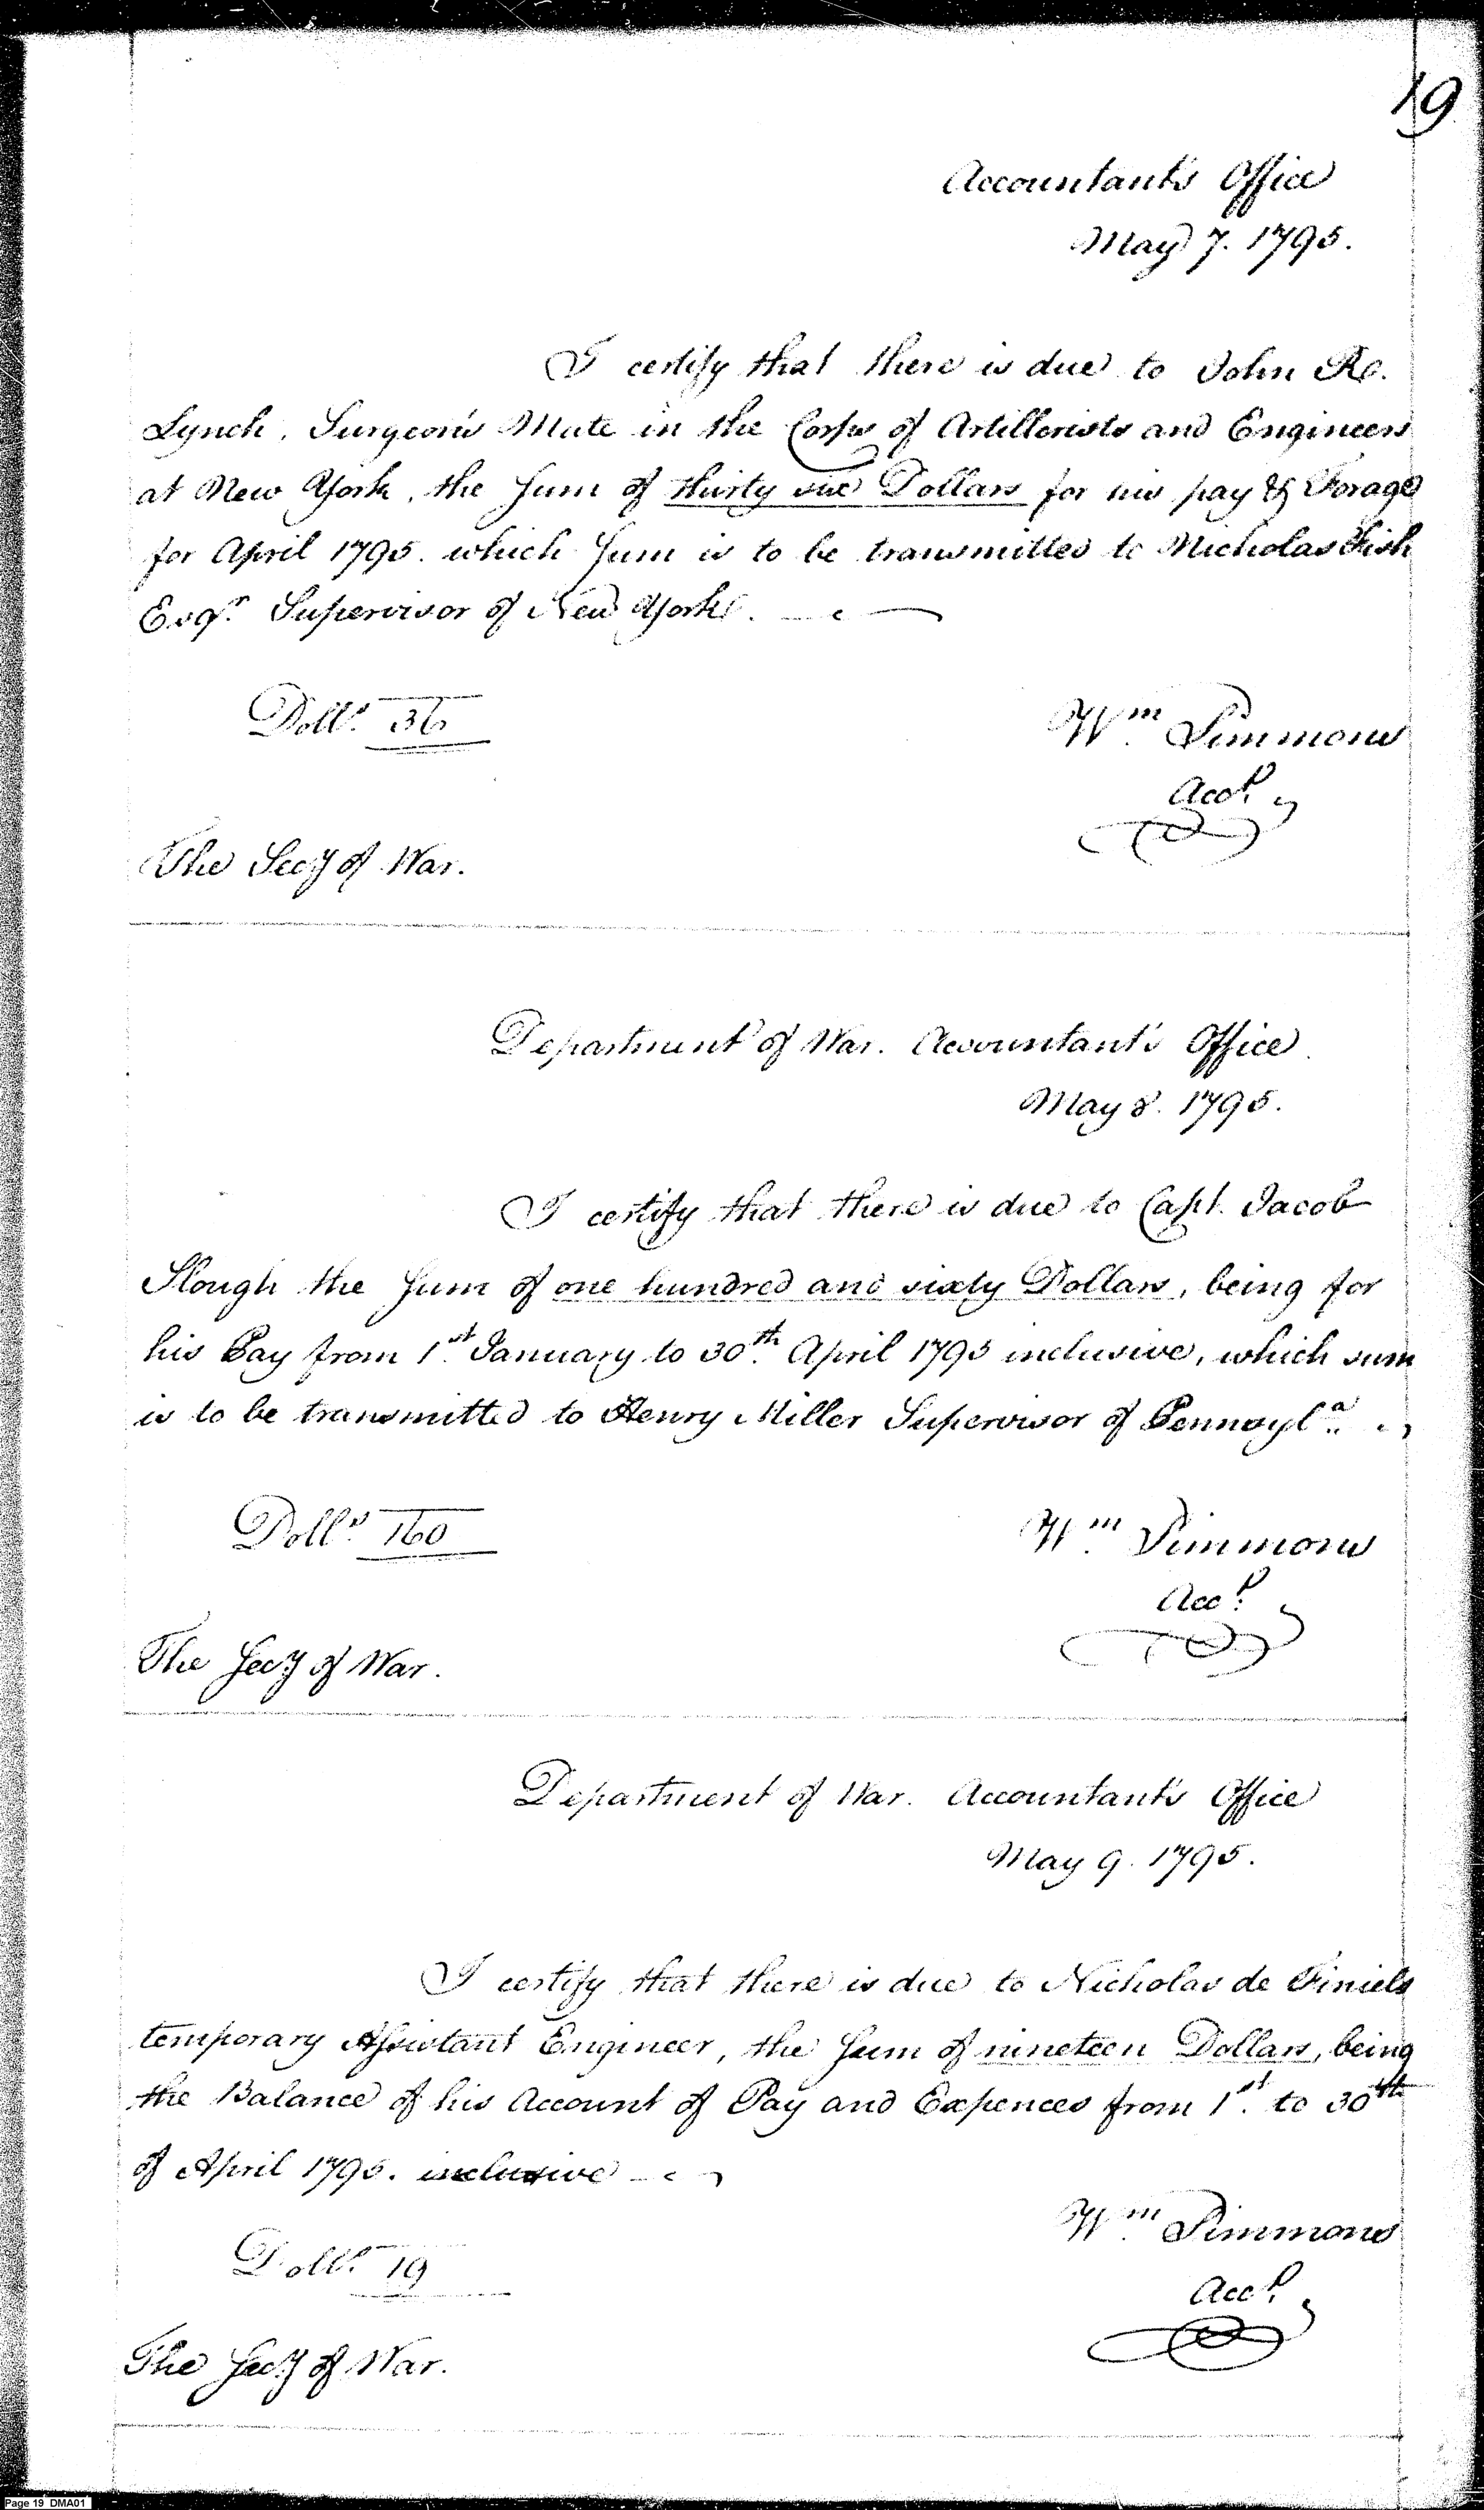 19
Accountant's Office
May 7. 1795.
I certify that there is due to John R.
Lynch, Surgeon's Mate in the Corps of Artillerists and Engineers
at New York, the Sum of thirty six Dollars for his pay & Forage
for April 1795. which Sum is to be transmitted to Nicholas Fish
Esqr. Supervisor of New York.
Dolls. 36
Wm. Simmons
Acct.
The Secy of War.
Department of War. Accountant's Office
May 8. 1795.
I certify that there is due to Capt. Jacob
Slough the Sum of one hundred and sixty Dollars, being for
his Pay from 1st. January to 30th. April 1795 inclusive, which sum
is to be transmitted to Henry Miller Supervisor of Pennsyla.
Dolls. 160
Wm. Simmons
Acct.
The Secy of War.
Department of War. Accountant's Office
May 9. 1795.
I certify that there is due to Nicholas de Finiels
temporary Assistant Engineer, the Sum of nineteen Dollars, being
the Balance of his Account of Pay and Expences from 1st. to 30th
of April 1795. inclusive
Dolls. 19
Wm. Simmons
Acct.
The Secy of War.
Page 19 DMA01